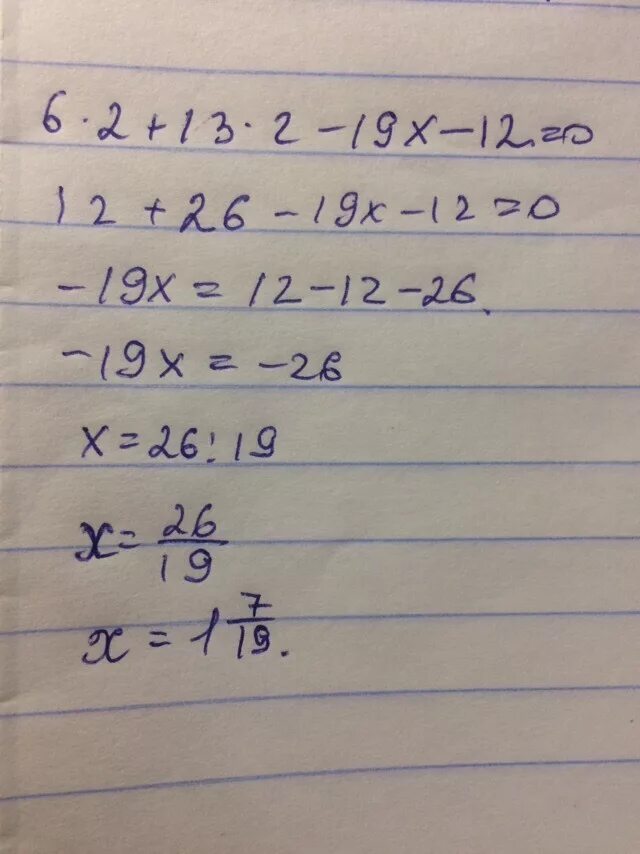 6·2+13·2-19x-12=0
12+26-19x-12=0
-19x=12-12-26.
-19x=-26
x=26:19
x=26/19
x=1 7/19.